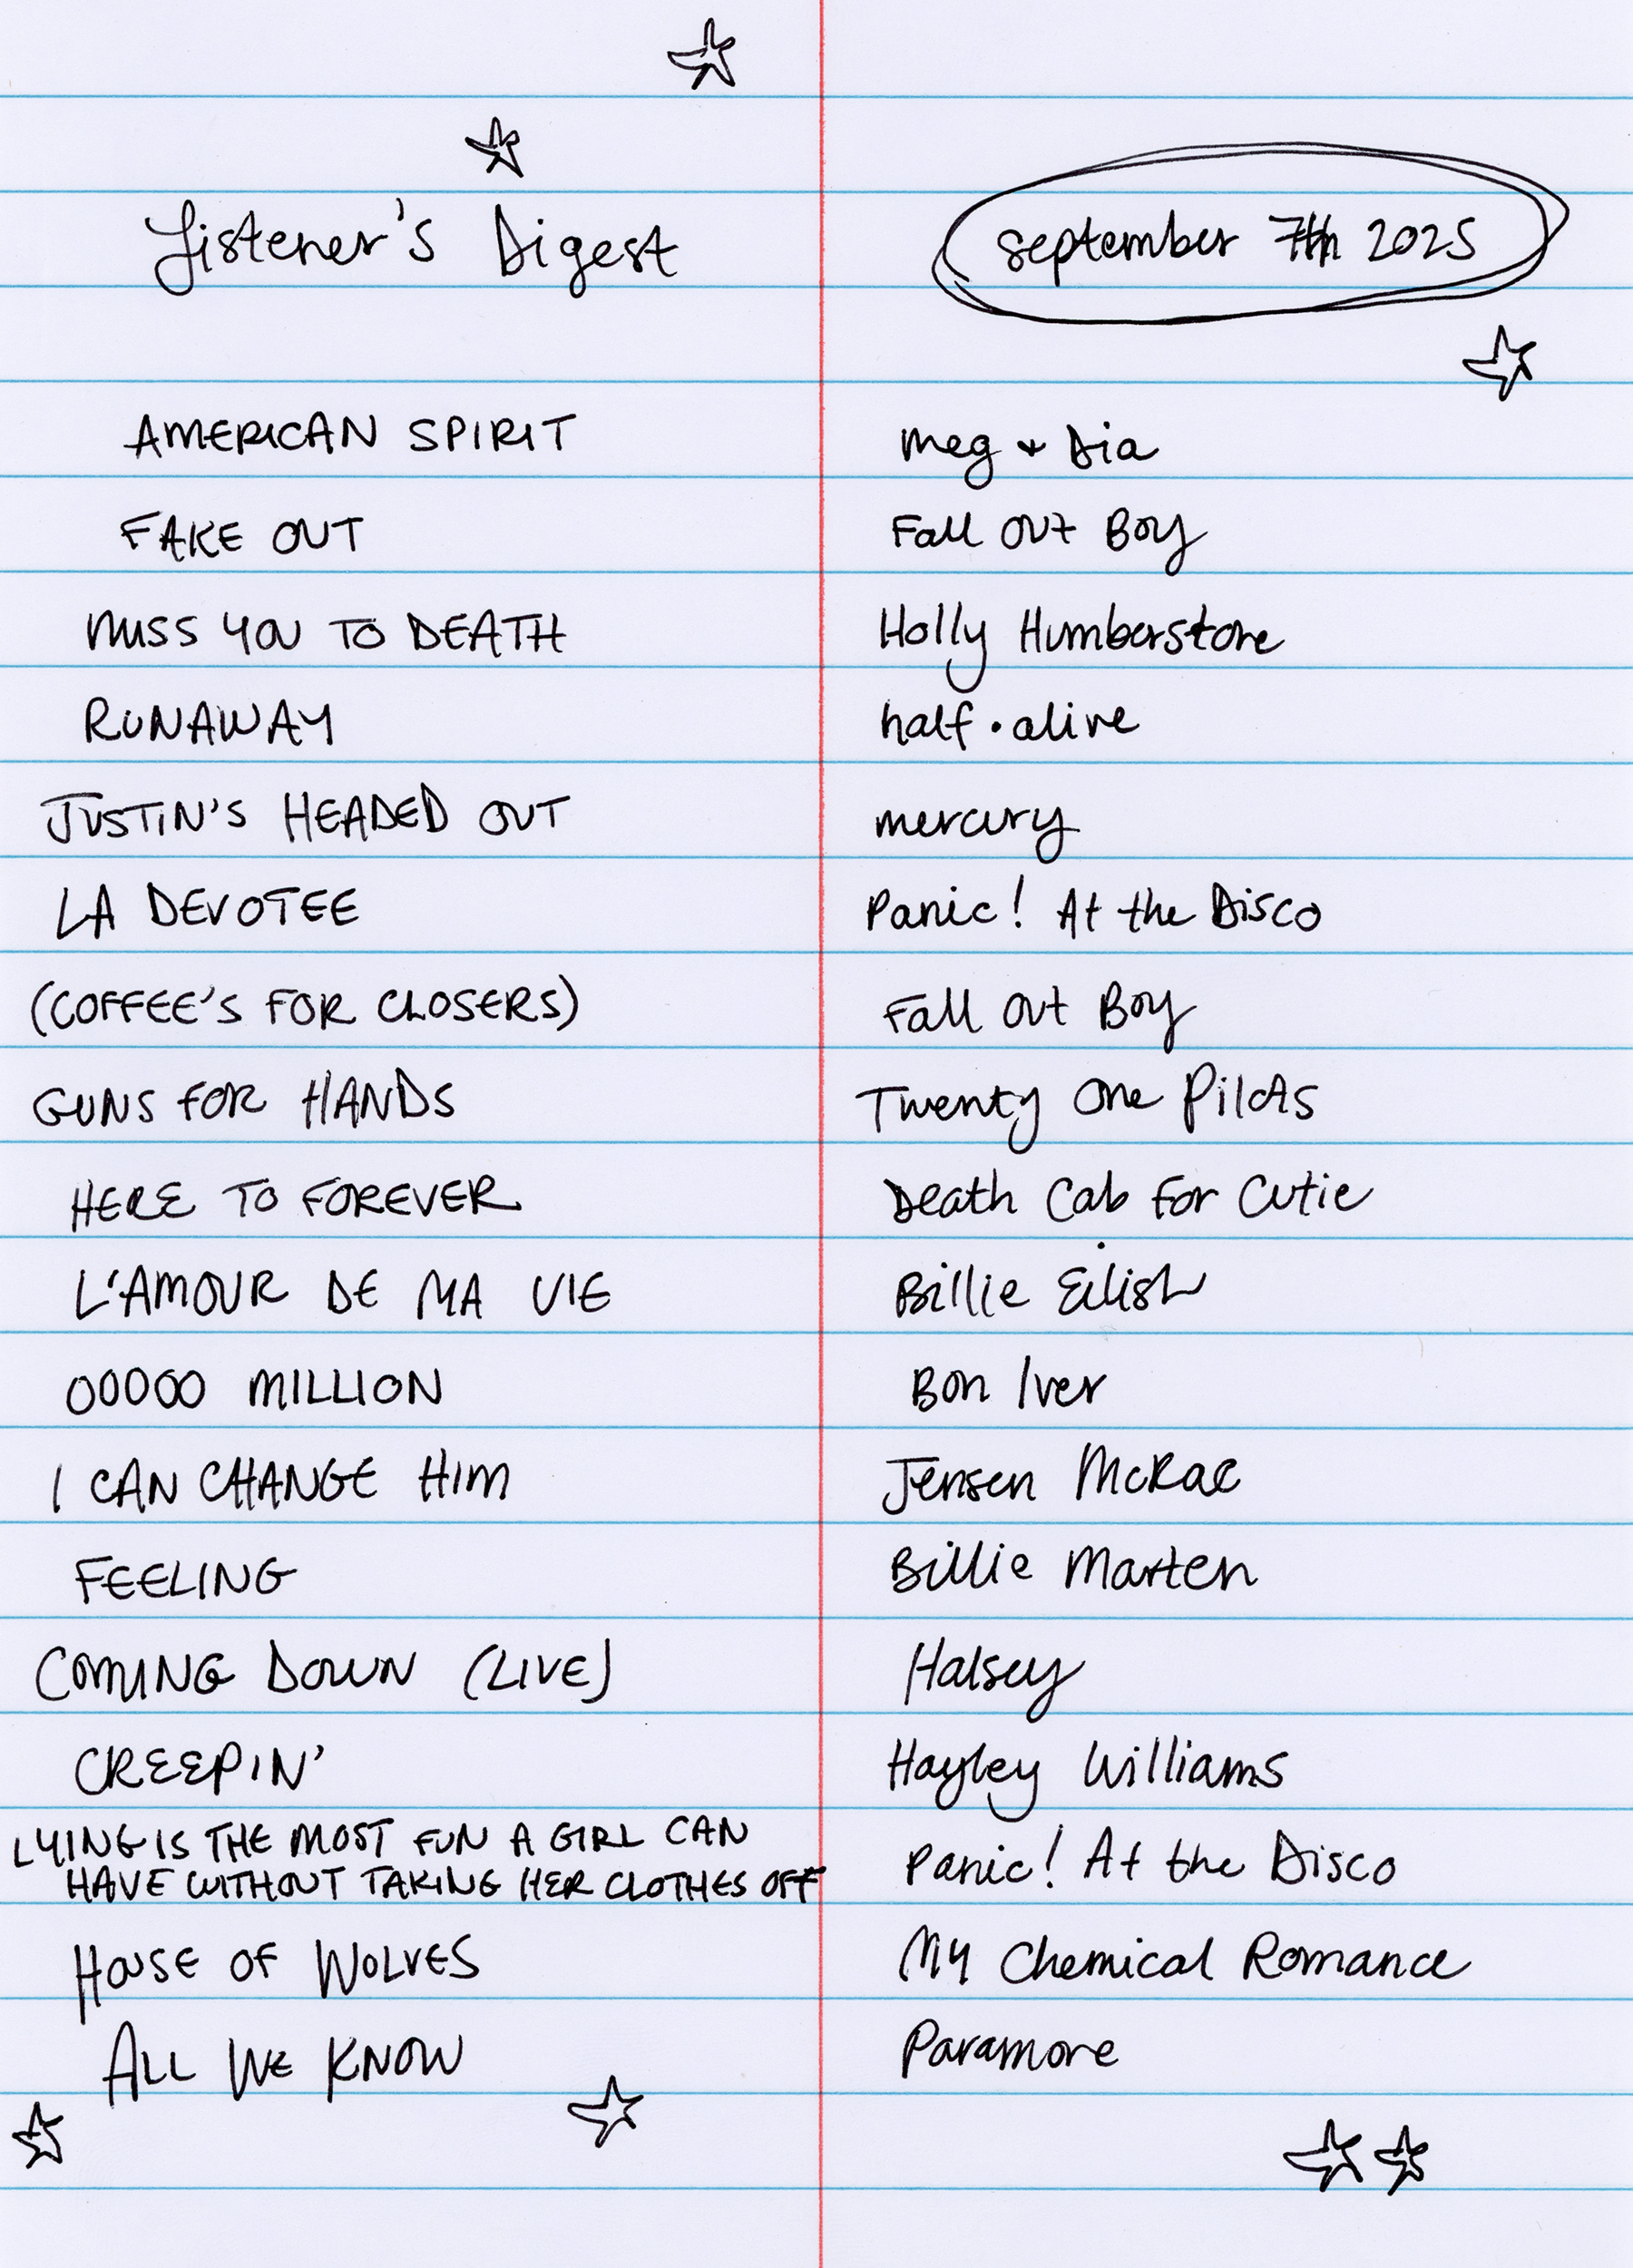 Listener's Digest
September 7th 2025
AMERICAN SPIRIT Meg + Dia
FAKE OUT Fall Out Boy
MISS YOU TO DEATH Holly Humberstone
RUNAWAY half·alive
JUSTIN'S HEADED OUT mercury
LA DEVOTEE Panic! At the Disco
(COFFEE'S FOR CLOSERS) Fall Out Boy
GUNS FOR HANDS Twenty One Pilots
HERE TO FOREVER Death Cab For Cutie
L'AMOUR DE MA VIE Billie Eilish
00000 MILLION Bon Iver
I CAN CHANGE HIM Jensen McRae
FEELING Billie Marten
COMING DOWN (LIVE) Halsey
CREEPIN' Hayley Williams
LYING IS THE MOST FUN A GIRL CAN
HAVE WITHOUT TAKING HER CLOTHES OFF Panic! At the Disco
HOUSE OF WOLVES My Chemical Romance
ALL WE KNOW Paramore